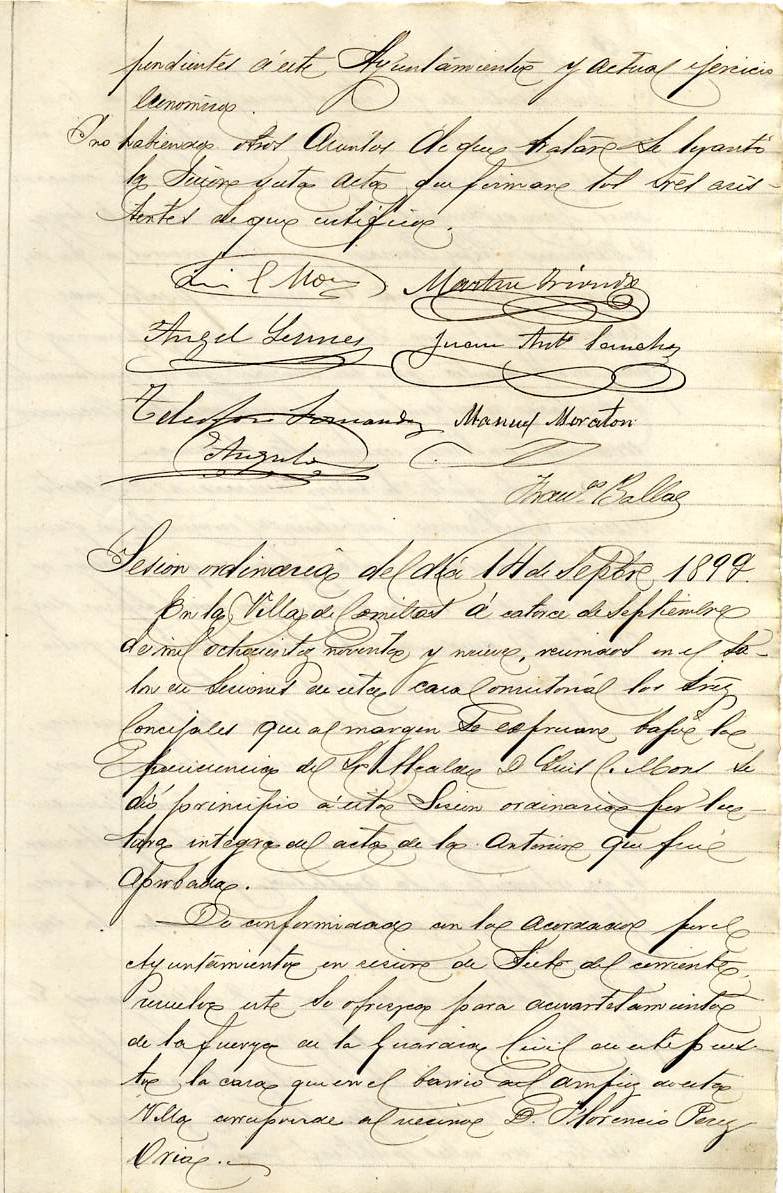 pendientes á este Ayuntamiento y actual ejercicio
económico.
Y no habiendo otros asuntos de que tratar se levantó
la Sesion y esta acta que firman los sres asis-
tentes de que certifico.
Martin
Angel Juan Antº Sanchez
Telesforo Fernandez Manuel Moraton
Angulo
Sesion ordinaria del dia 14 de Septbre 1899.
En la Villa de Comillas á catorce de Septiembre
de mil ochocientos noventa y nueve, reunidos en el Sa-
lon de Sesiones de esta casa Consistorial los Sres
Concejales que al margen se espresan bajo la
Presidencia del Sr. Alcalde D. Luis C. Mons se
dió principio á esta Sesion ordinaria por lec-
tura integra del acta de la anterior que fué
aprobada.
De conformidad con lo acordado por el
Ayuntamiento en sesion de Siete del corriente,
resuelve este se ofrezca para acuartelamiento
de la fuerza de la Guardia Civil de este pues-
to, la casa que en el barrio del de esta
Villa corresponde al vecino D. Florencio Perez
Oria.